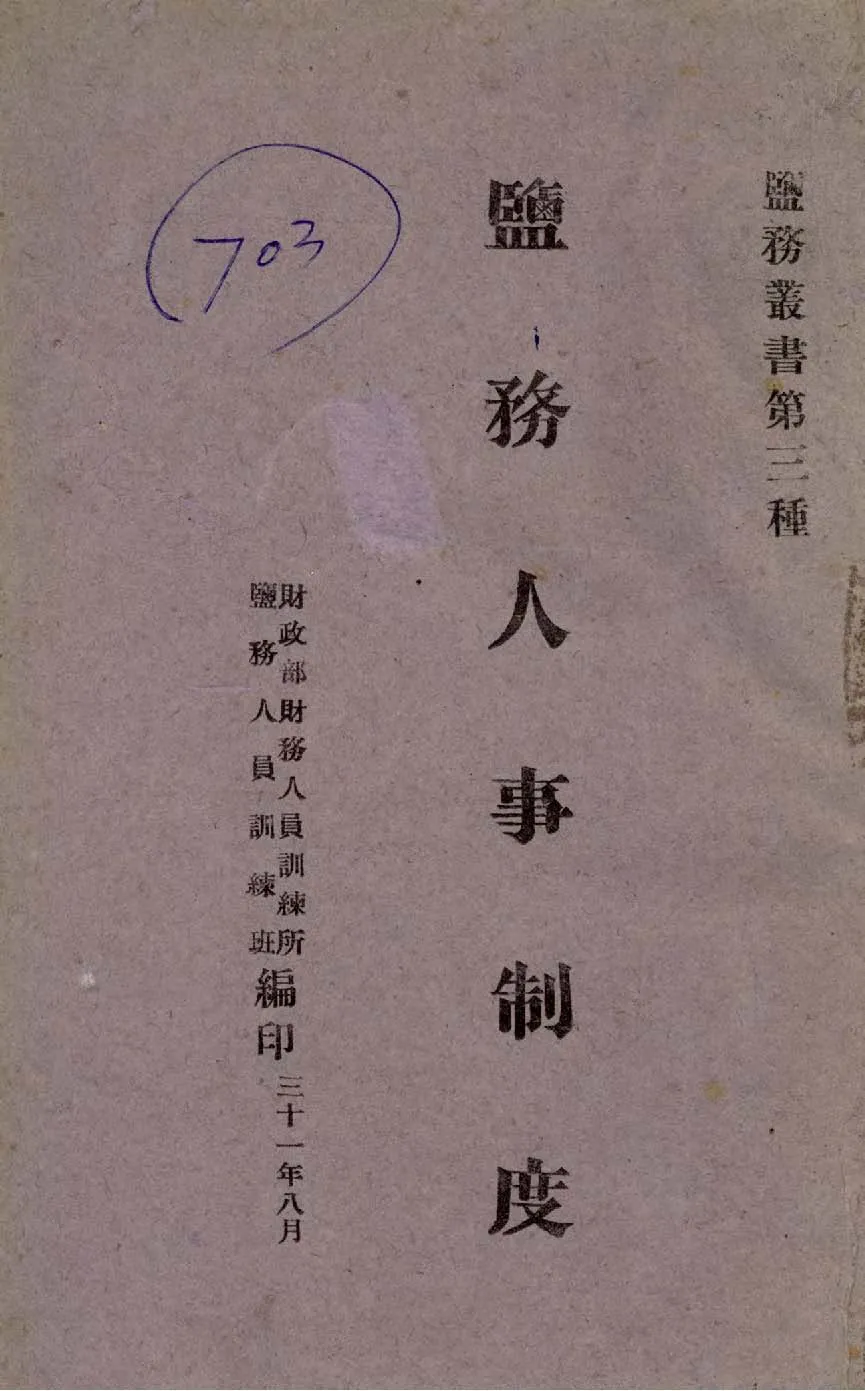 鹽務叢書第三種
鹽務人事制度
703
財政部財務人員訓練所
鹽務人員訓練班
編印
三十一年八月